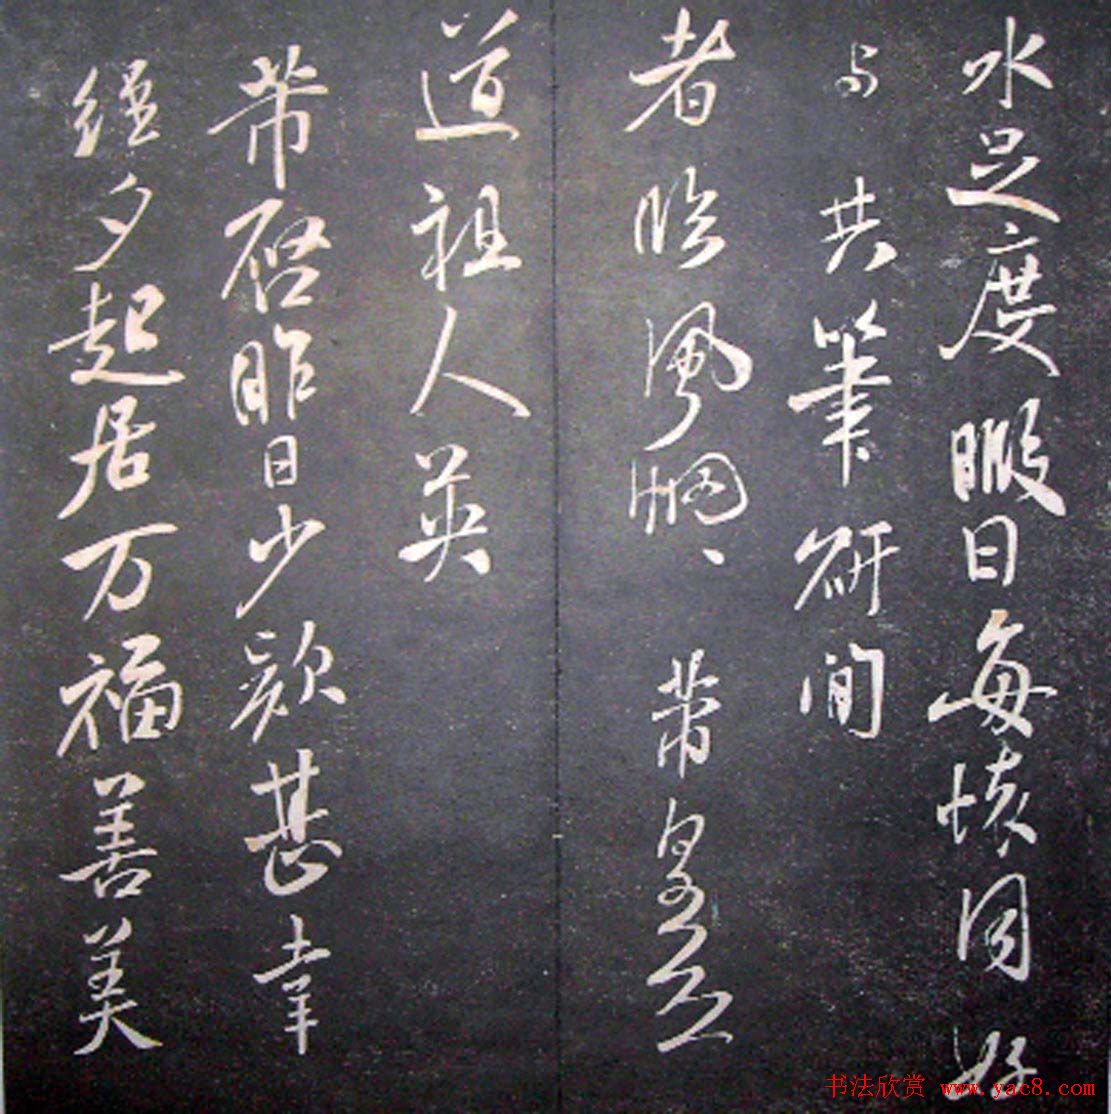 水足度暇日每懷同好
与共筆研間
者臨風惘、芾皇恐
道祖人英
芾啓昨日少款甚幸
經夕起居万福善美
书法欣赏 www.yac8.com